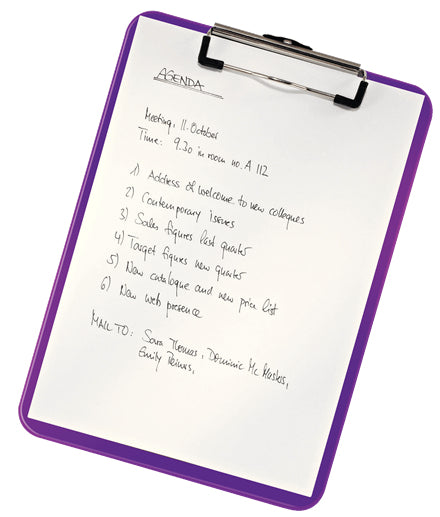 AGENDA
Meeting, 11. October
Time: 9.30 in room no. A 112
1) Address of welcome to new collegues
2) Contemporary Issues
3) Sales figures last quarter
4) Target figures new quarter
5) New catalogue and new price list
6) New web presence
MAIL TO: Sara Thomas, Dominic Mc.
Emily